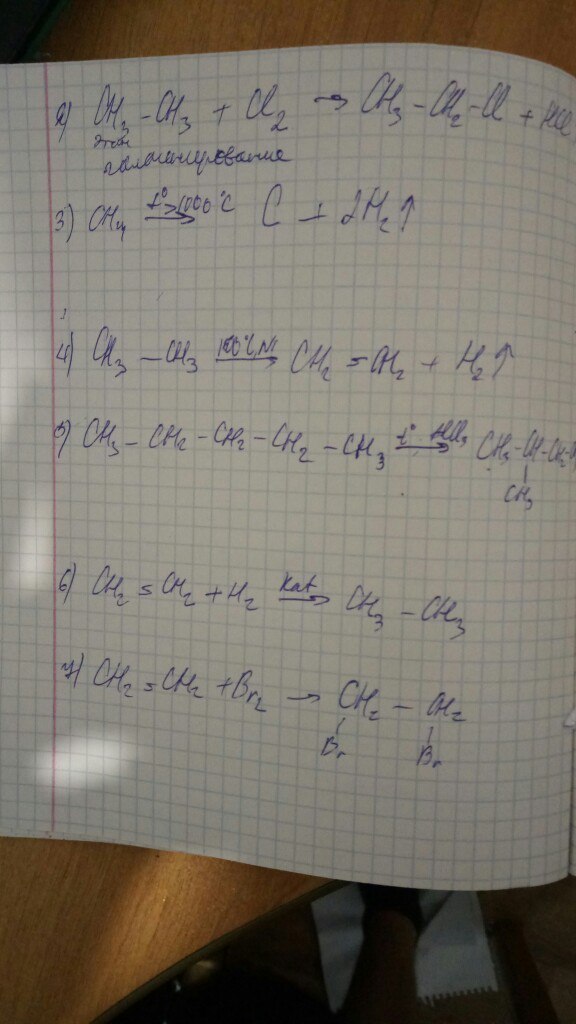 2) CH3 - CH3 + Cl2 → CH3 - CH2 - Cl + HCl
этан
галогенирование
3) CH4 t°>1000°C → C + 2H2↑
4) CH3 - CH3 Ni → CH2 = CH2 + H2↑
5) CH3 - CH2 - CH2 - CH2 - CH3 t° → CH3 - CH - CH2 -
CH3
6) CH2 = CH2 + H2 Kat → CH3 - CH3
7) CH2 = CH2 + Br2 → CH2 - CH2
Br Br